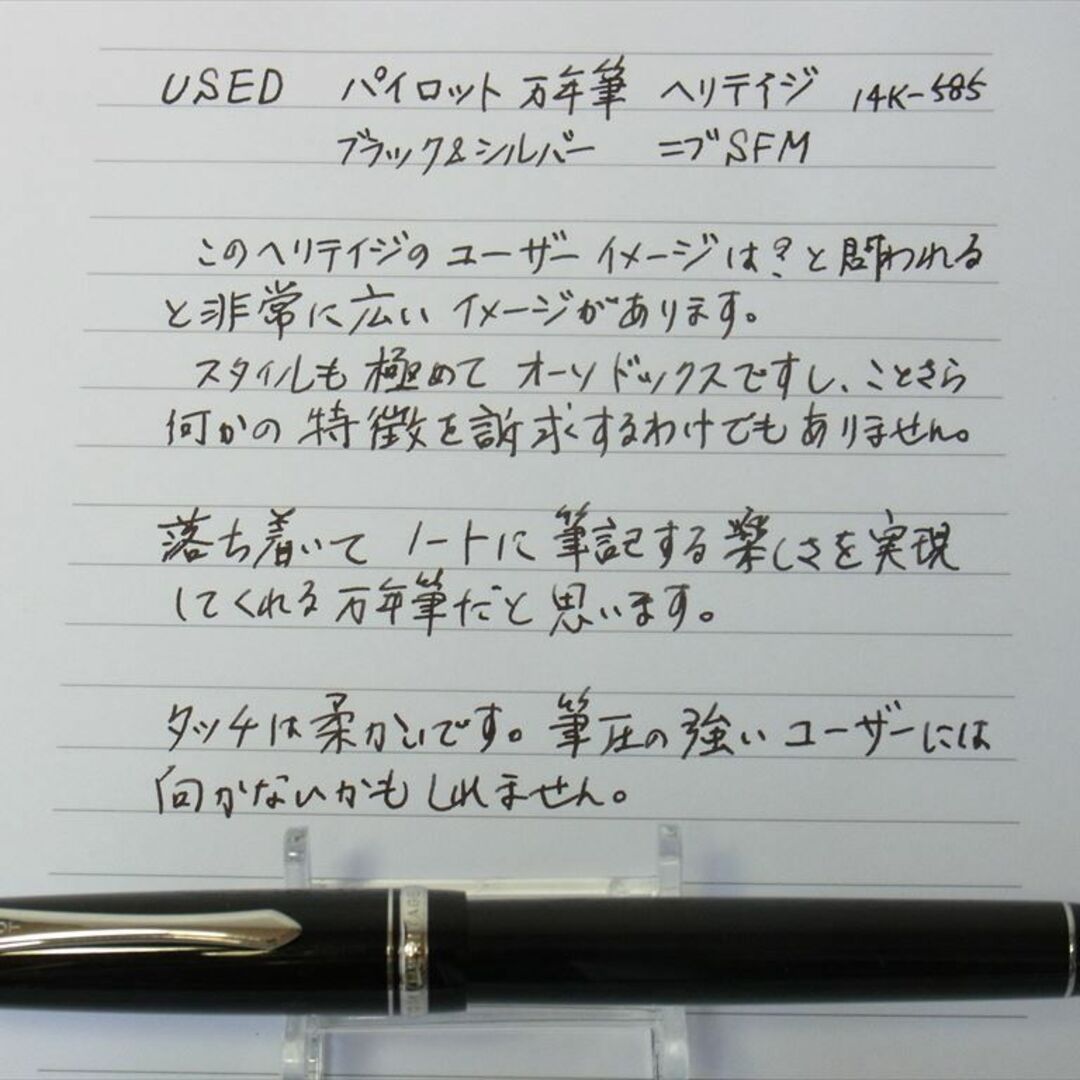 USED パイロット 万年筆 ヘリテイジ 14K-585
ブラック&シルバー ニブSFM
このヘリテイジのユーザーイメージは?と問われる
と非常に広いイメージがあります。
スタイルも極めてオーソドックスですし、ことさら
何かの特徴を訴求するわけでもありません。
落ち着いてノートに筆記する楽しさを実現
してくれる万年筆だと思います。
タッチは柔かいです。筆圧の強いユーザーには
向かないかもしれません。